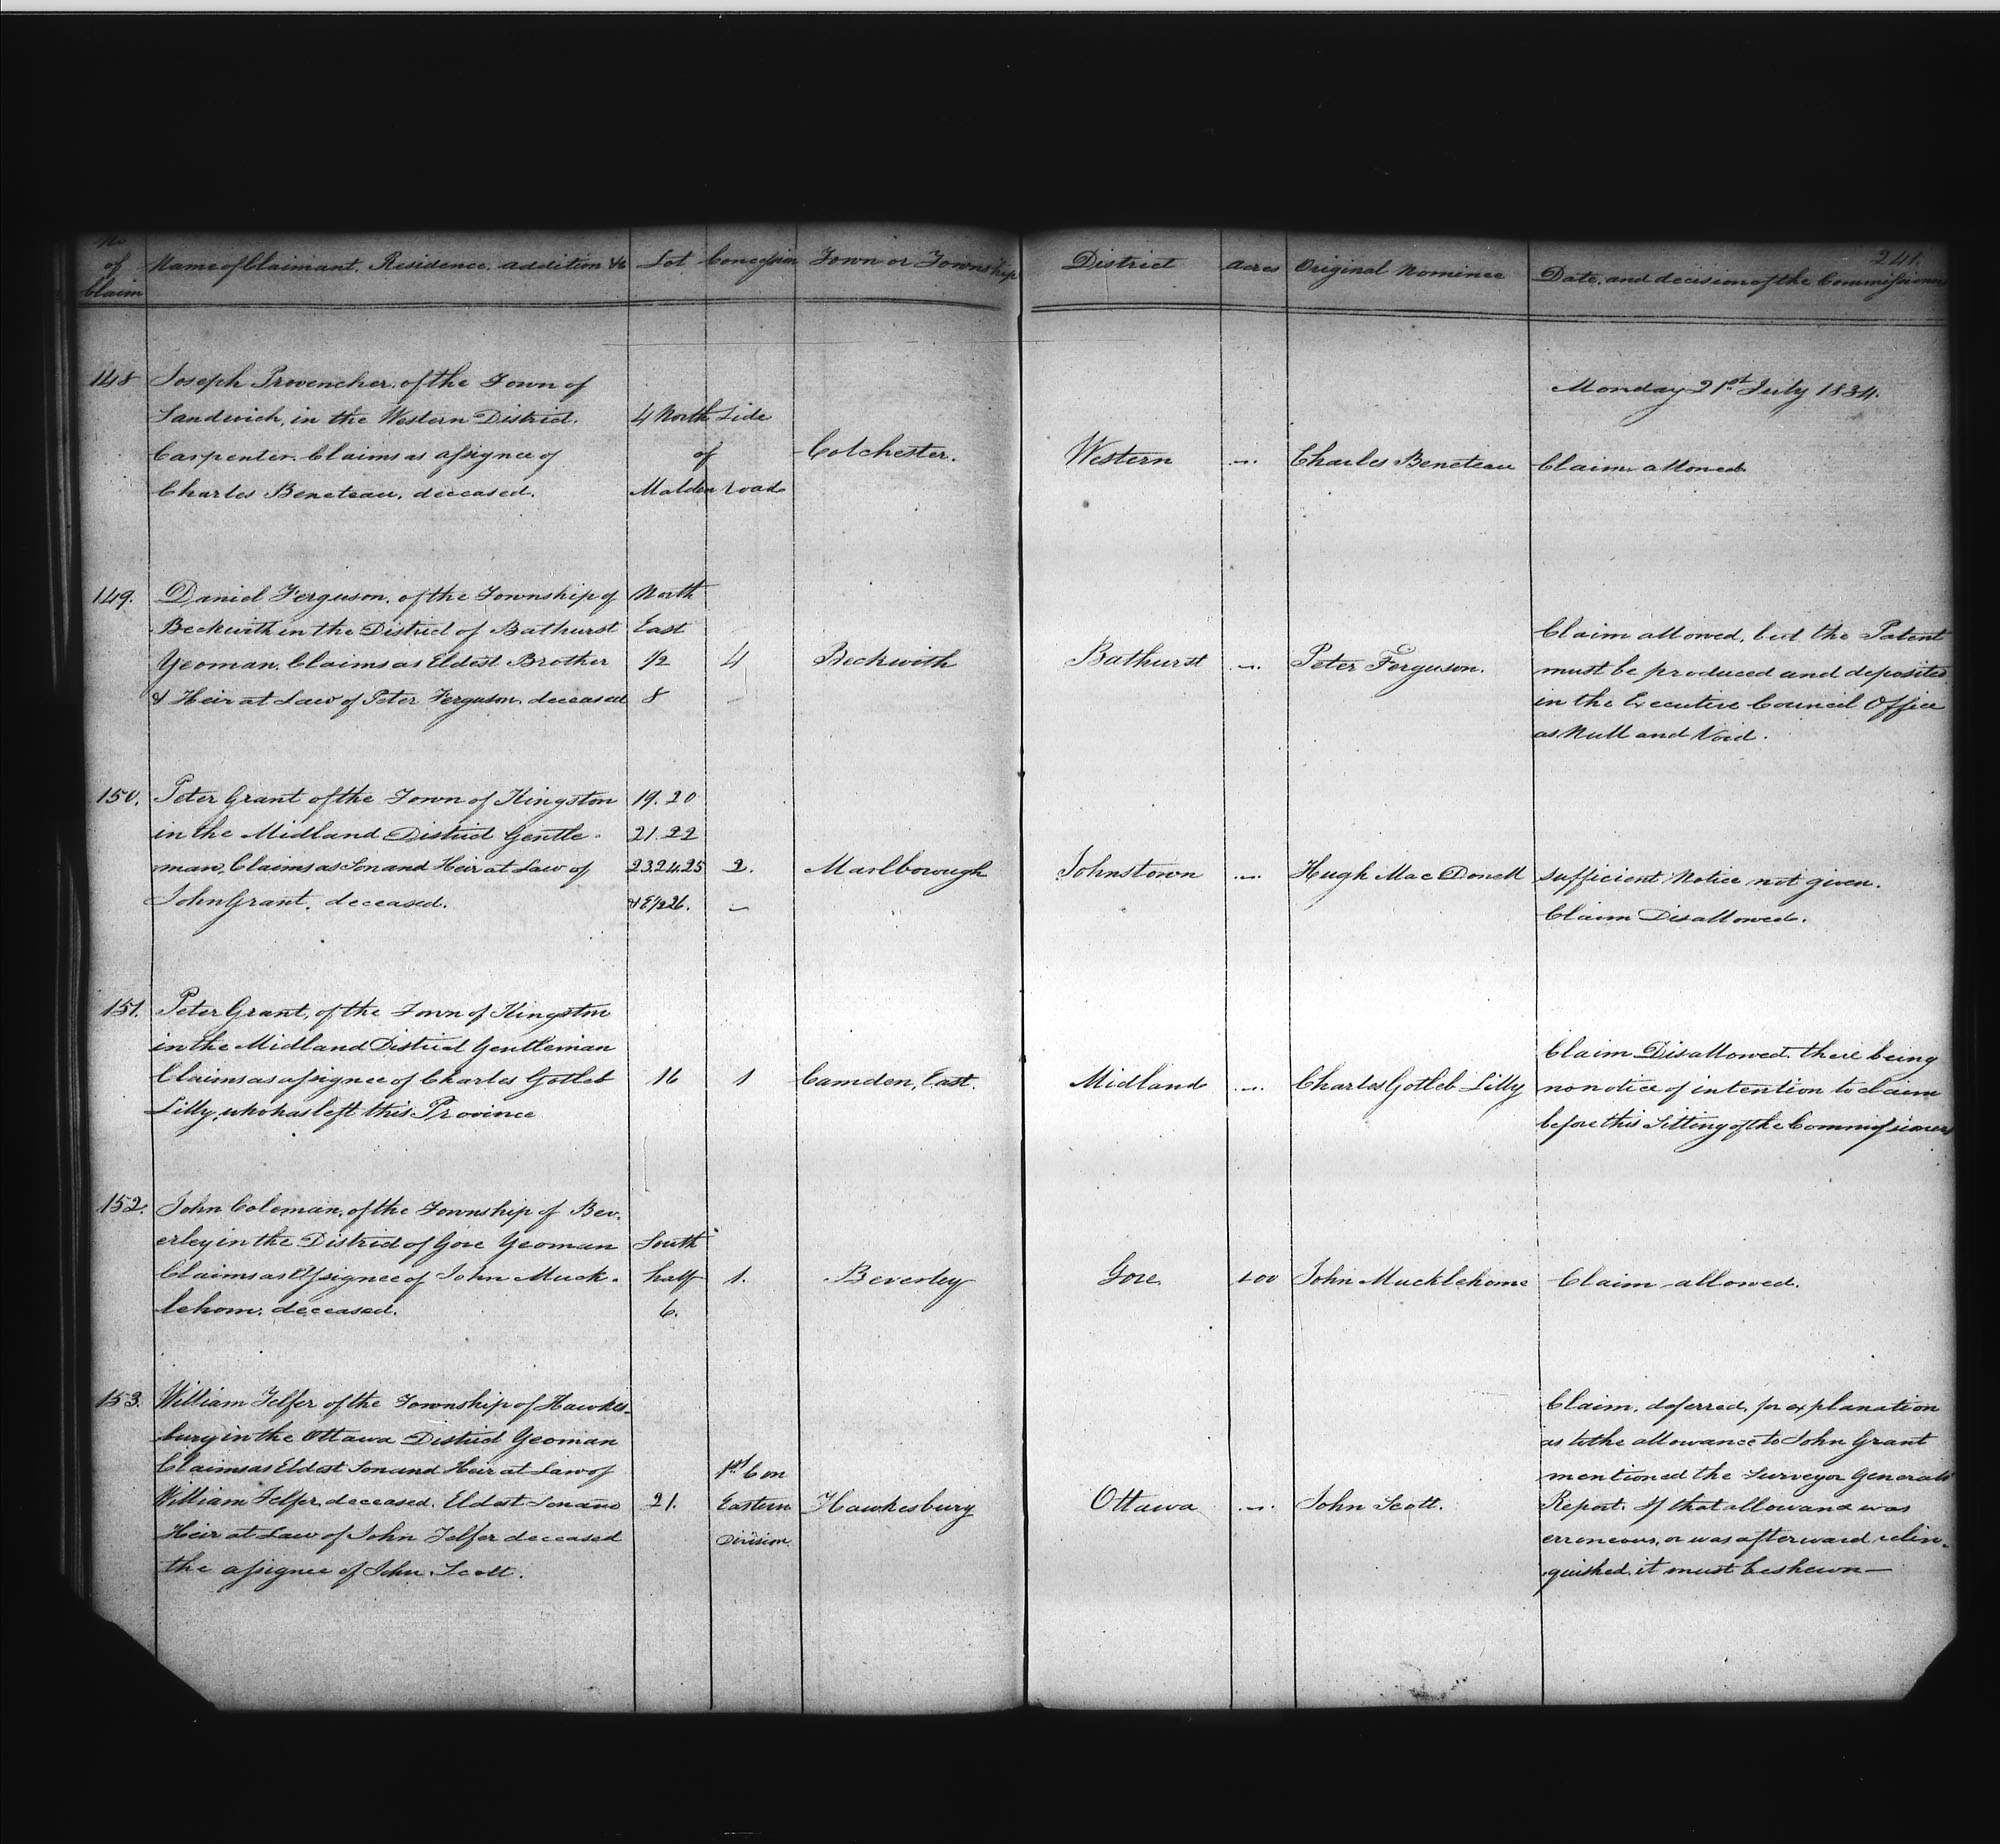 241.
No of Claim
Name of Claimant, Residence, addition &c
Lot
Concession
Town or Township
District
Acres
Original Nominee
Date, and decision of the Commissioners
Monday 21st July 1834.
148
Joseph Provencher, of the Town of
Sandwich, in the Western District.
Carpenter. Claims as assignee of
Charles Beneteau, deceased.
4 North Side
of
Malden road
Colchester.
Western
Charles Beneteau
Claim allowed
149.
Daniel Ferguson, of the Township of
Beckwith in the District of Bathurst
Yeoman, Claims as Eldest Brother
& Heir at Law of Peter Ferguson deceased
North
East
1/2
8
4
Beckwith
Bathurst
Peter Ferguson.
Claim allowed, but the Patent
must be produced and deposited
in the Executive Council Office
as Null and Void.
150.
Peter Grant of the Town of Kingston
in the Midland District Gentle-
man, Claims as Son and Heir at Law of
John Grant, deceased.
19. 20
21. 22
23.24.25
& E1/2 26.
2.
Marlborough
Johnstown
Hugh MacDonell
Sufficient Notice not given.
Claim Disallowed.
151.
Peter Grant, of the Town of Kingston
in the Midland District Gentleman
Claims as assignee of Charles Gotleb
Lilly, who has left this Province
16
1
Camden, East.
Midland
Charles Gotleb Lilly
Claim Disallowed there being
no notice of intention to claim
before this Sitting of the Commissioners
152.
John Coleman, of the Township of Bev-
erley in the District of Gore Yeoman
Claims as Assignee of John Muck-
lehom, deceased.
South
half
6.
1.
Beverley
Gore
100
John Mucklehome
Claim allowed.
153.
William Telfer of the Township of Hawkes-
bury in the Ottawa District Yeoman
Claims as Eldest Son and Heir at Law of
William Telfer, deceased. Eldest Son and
Heir at Law of John Telfer deceased
the assignee of John Scott.
21.
1st Con
Eastern
Division
Hawkesbury
Ottawa
John Scott.
Claim, deferred, for explanation
as to the allowance to John Grant
mentioned the Surveyor Generals
Report. If that allowance was
erroneous, or was afterward relin-
quished, it must be shewn—